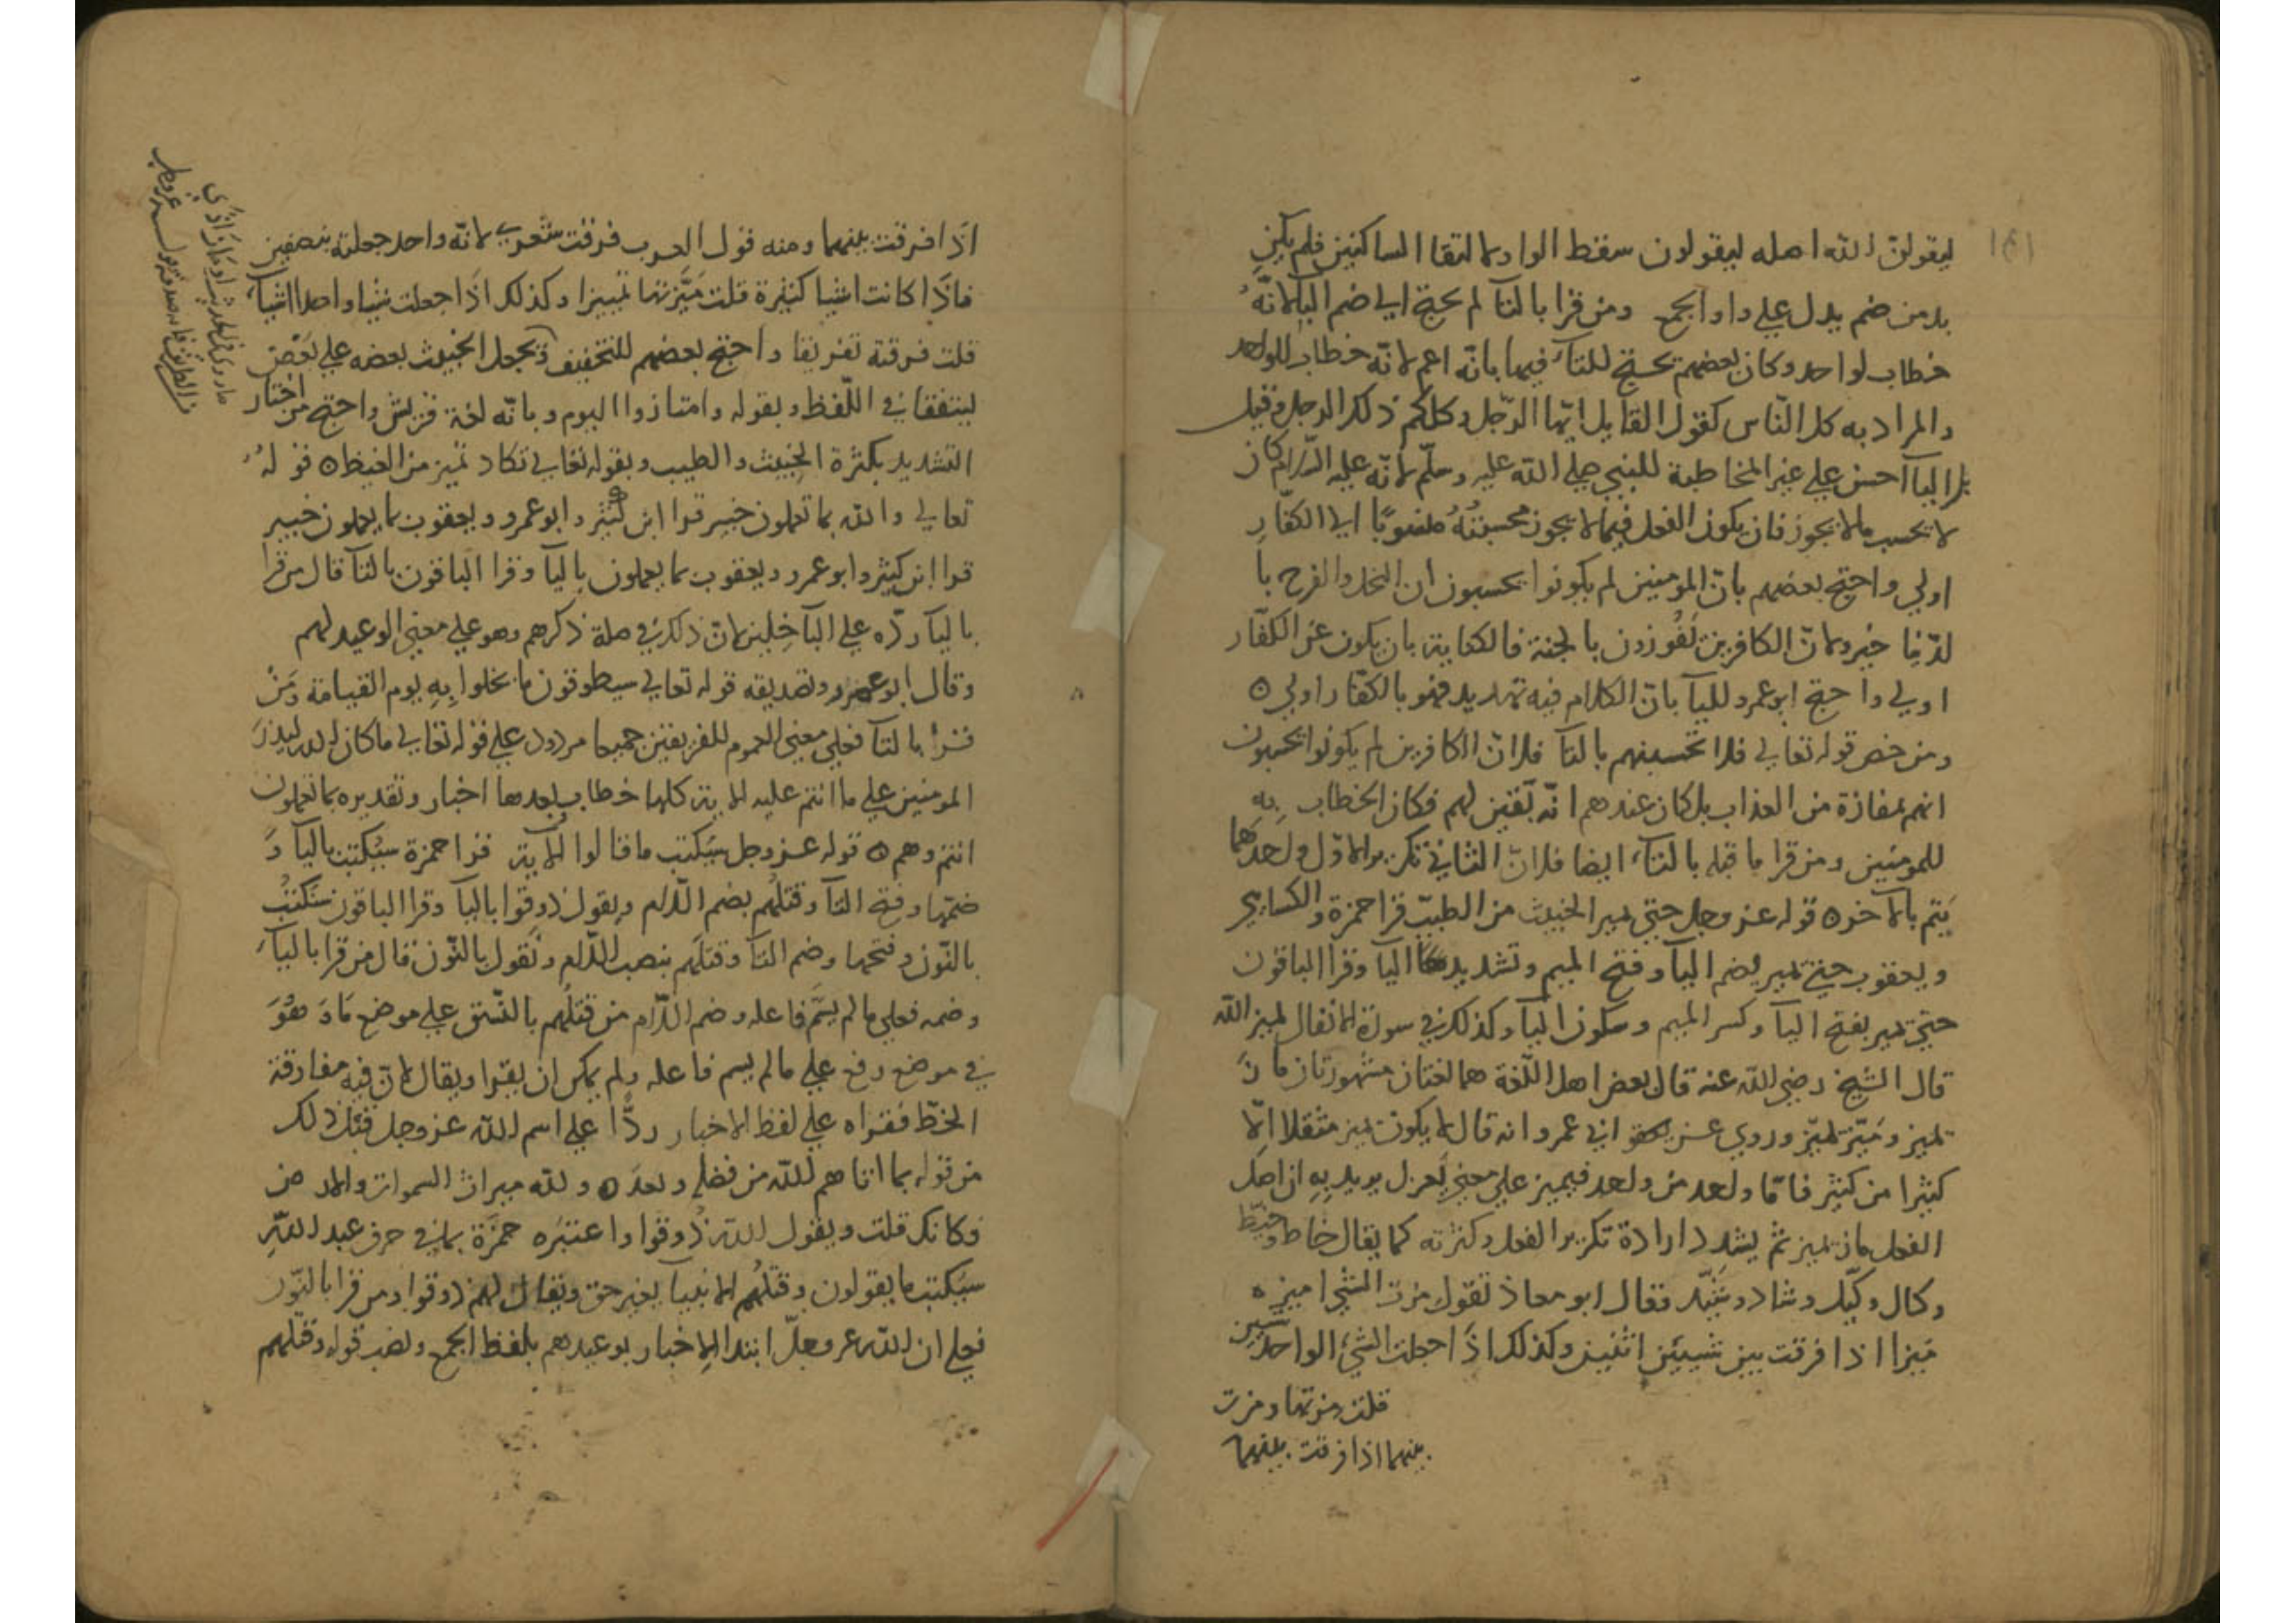 ليقولنّ الله اصله ليقولون سقط الواو لالتقا الساكنين فلم يكن
بد من ضم يدل علي واو الجمع ومن قرا بالتآ لم يحتج الي ضم الباء لانّه
خطاب لواحد وكان بعضهم يحتج للتآء فيها بانّه اعم لانّه خطاب للواحد
والمراد به كل النّاس كقول القايل ايّها الرّجل وكلكم ذلك الرجل وقيل
بل اليآ احسن علي غير المخاطبة للنبي صلي الله عليه وسلّم لانّه عليه السّلام كان
لا يحسب مالا يجوز فان يكون الفعل فيما لا يجوز محسبتهُ منسوبًا الي الكفّار
اولي واحتج بعضهم بانّ المومنين لم يكونوا يحسبون ان البخل والفرح با
لدّنيا خير ولا انّ الكافرين يفوزون بالجنة فالكناية بان يكون عن الكفّار
اولي واحتج ابو عمرو لليآ بانّ الكلام فيه تهديد فهو بالكفّار اولي ه
ومن خص قوله تعالي فلا تحسبنهم بالتآ فلانّ الكافرين لم يكونوا يحسبون
انهم بمفازة من العذاب بل كان عندهم انّه يقين لهم فكان الخطاب به
للمومنين ومن قرا ما قبله بالتآء ايضا فلانّ الثاني تكرير الاوّل واحدهما
يتم بالآخر ه قوله عز وجل حتي يميز الخبيث من الطيب قرا حمزة والكسايي
ويعقوب حتي يميز بضم اليآ وفتح الميم وتشديد اليآ وقرا الباقون
حتي يميز بفتح اليآ وكسر الميم وسكون اليآ وكذلك في سورة الانفال ليميز الله
قال الشيخ رضي الله عنه قال بعض اهل اللّغة هما لغتان مشهورتان مازَ
يميز ومَيّز يميّز وروي عن ابي عمرو انه قال لا يكون يميز مثقلا الّا
كثيرا من كثير فامّا واحد من واحد فيميز علي معني يعزل يريد به ان اصل
الفعل ماز يميز ثم يشدد ارادة تكرير الفعل وكثرته كما يقال خاط وخيّط
وكال وكيّل وشاد وشيّد فقال ابو معاذ تقول مزت الشي اميزه
مَيزا اذا فرقت بين شيئين اثنين وكذلك اذا جعلت الشيء الواحد شيئين
قلت مزتها ومزت
بينهما اذا فرقت بينهما
اذا فرقت بينهما ومنه قول العرب فرقت شعري لانّه واحد جعلته نصفين
فاذا كانت اشيا كثيرة قلت مَيّزتها تمييزا وكذلك اذا جعلت شيا واحدا اشيآء
قلت فرقته تفريقا واحتج بعضهم للتخفيف ويجعل الخبيث بعضه علي بعض
ليتفقا في اللّفظ وبقوله وامتازوا اليوم وبانّه لغة قريش واحتج من اختار
التشديد بكثرة الخبيث والطيب وبقوله تعالي تكاد تميز من الغيظ ه قوله
تعالي والله بما تعملون خبير قرا ابن كثير وابو عمرو ويعقوب بما يعملون خبير
قرا ابن كثير وابو عمرو ويعقوب بما يعملون باليآ وقرا الباقون بالتآ قال من قرا
باليآ ردّه علي الباخلين لانّ ذلك في صلة ذكرهم وهو علي معني الوعيد لهم
وقال ابو عمرو وتصديقه قوله تعالي سيطوقون ما بخلوا بِهِ يوم القيامة ومَنْ
قرأ بالتآ فعلي معني العموم للفريقين جميعا مردود علي قوله تعالي ما كان الله ليذر
المومنين علي ما انتم عليه الاية كلها خطاب وبعدها اخبار وتقديره بما تعملون
انتم وهم ه قوله عز وجل سنكتب ما قالوا الآية قرا حمزة سيُكتب باليآ وَ
ضمّها وفتح التآ وقتلُهم بضم اللّام ويقول ذوقوا باليآ وقرا الباقون سنكتبُ
بالنّون وفتحها وضم التآ وقتلَهم بنصب اللّام ونقول بالنّون قال من قرا باليآء
وضمه فعلي ما لم يسّم فاعله وضم اللّام من قتلُهم بالنّسق علي موضع مَا وَ هوَ
في موضع رفع علي ما لم يسم فاعله ولم يمكن ان يقرا ويقال لانّ فيه مفارقة
الخطّ فقراه علي لفظ الاخبار ردًّا علي اسم الله عز وجل قبل ذلك
من قوله بما اتاهم الله من فضله وبعدَه ولله ميراث السموات والارض
فكانك قلت ويقول الله ذُوقوا واعتبَره حمزَة بما في حرف عبد اللهِ
سيُكتب ما يقولون وقتلُهم الانبيآ بغير حق ويقال لهم ذوقوا ومن قرا بالنّون
فعلي ان الله عز وجلّ ابتدا الاخبار بوعيدهم بلفظ الجمع ونصب قوله وقتلهم